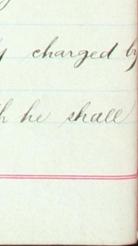 charged by
he shall